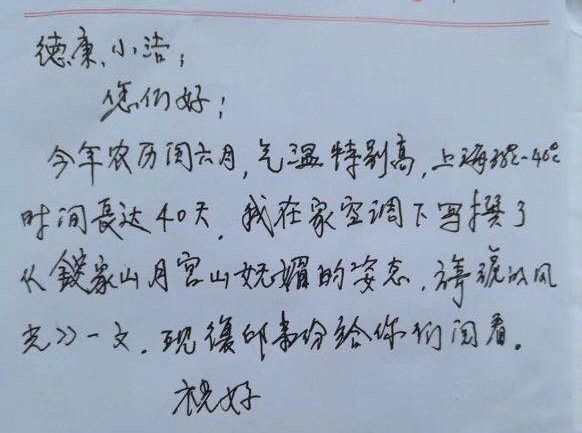 德康、小洁:
您们好:
今年农历闰六月,气温特别高,上海38℃-40℃
时间長达40天,我在家空调下写撰了
《錢家山月宫山妩媚的姿态,
光》一文,现復印壹份给你们阅看。
祝好